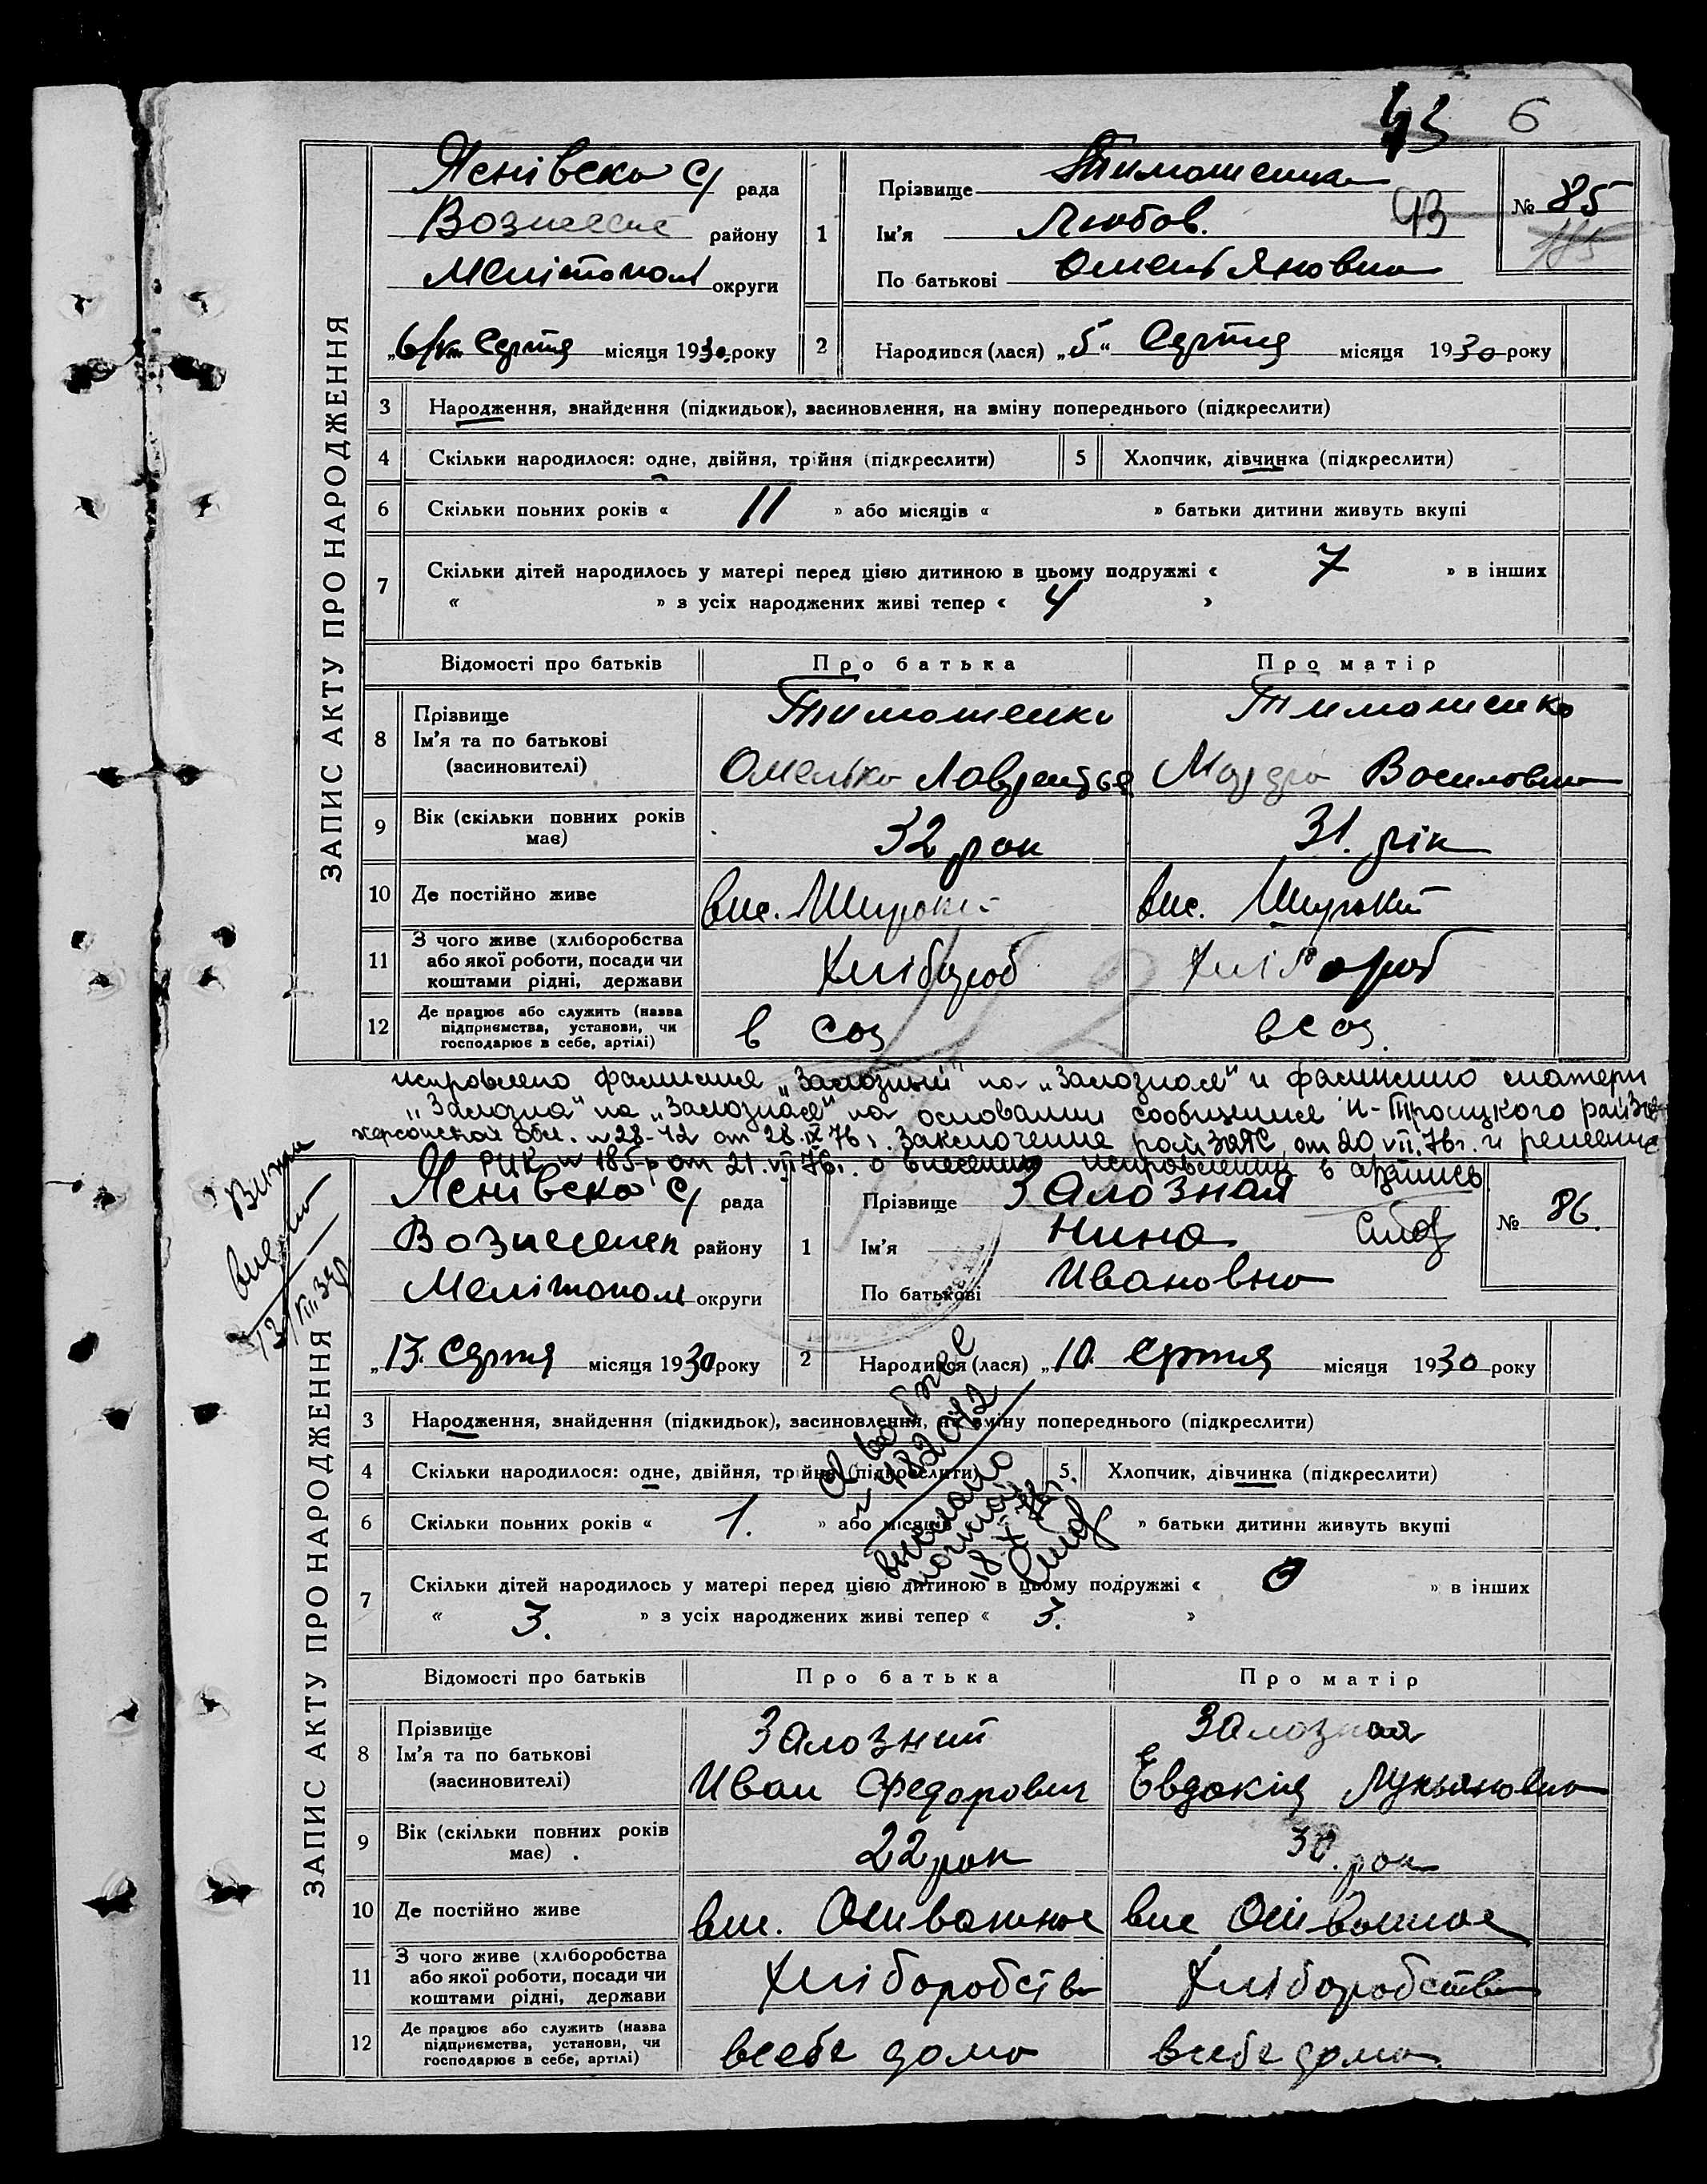 43 6
ЗАПИС АКТУ ПРО НАРОДЖЕННЯ
Яснівська С/ рада
Вознесенс району
Мелітополь округи
„6/" Серпня місяця 1930 року
1 Прізвище Тимошенко
Ім'я Любов. 43
По батькові Омеляновна
№ 85
2 Народився (лася) „5" Серпня місяця 1930 року
3 Народження, знайдення (підкидьок), засиновлення, на зміну попереднього (підкреслити)
4 Скільки народилося: одне, двійня, трійня (підкреслити) 5 Хлопчик, дівчинка (підкреслити)
6 Скільки повних років « 11 » або місяців « » батьки дитини живуть вкупі
7 Скільки дітей народилось у матері перед цією дитиною в цьому подружжі « 7 » в інших
« » з усіх народжених живі тепер « 4 »
Відомості про батьків Про батька Про матір
8 Прізвище
Ім'я та по батькові
(засиновителі)
Тимошенко Тимошенко
Омелько Лаврентьев Василовна
9 Вік (скільки повних років має) 32 рок 31. рік
10 Де постійно живе вис. Широкий вис. Широкий
11 З чого живе (хліборобства
або якої роботи, посади чи
коштами рідні, держави
Хлібороб Хлібороб
12 Де працює або служить (назва
підприємства, установи, чи
господарює в себе, артілі)
в соз в соз.
исправлено фамилия „Залозний" на „Залозная" и фамилию матери
„Залозна" на „Залозная" на основании сообщения Н-Троицкого райЗагс
херсонской обл. № 28-42 от 28.IX 76 г. Заключение рай ЗАГС от 20 VII.76г. и решение
РИК № 185-р от 21.VII 76г. о внесении исправлений в а/запись
ЗАПИС АКТУ ПРО НАРОДЖЕННЯ
Яснівська С/ рада
Вознесенск району
Мелітополь округи
„13. Серпня місяця 1930 року
1 Прізвище Залозная
Ім'я Нина
По батькові Ивановна
№ 86.
2 Народився (лася) „10. Серпня місяця 1930 року
3 Народження, знайдення (підкидьок), засиновлення, на зміну попереднього (підкреслити)
4 Скільки народилося: одне, двійня, трійня (підкреслити) 5. Хлопчик, дівчинка (підкреслити)
6 Скільки повних років « 1. » або місяців « » батьки дитини живуть вкупі
№ 482072
18 X 76г.
7 Скільки дітей народилось у матері перед цією дитиною в цьому подружжі « 0 » в інших
« 3. » з усіх народжених живі тепер « 3. »
Відомості про батьків Про батька Про матір
8 Прізвище
Ім'я та по батькові
(засиновителі)
Залозний Залозная
Иван Федорович Евдокія Лукьяновна
9 Вік (скільки повних років має) 22 рок 30. рок
10 Де постійно живе вис. вис
11 З чого живе (хліборобства
або якої роботи, посади чи
коштами рідні, держави
Хліборобства Хліборобства
12 Де працює або служить (назва
підприємства, установи, чи
господарює в себе, артілі)
в себе дома в себе дома